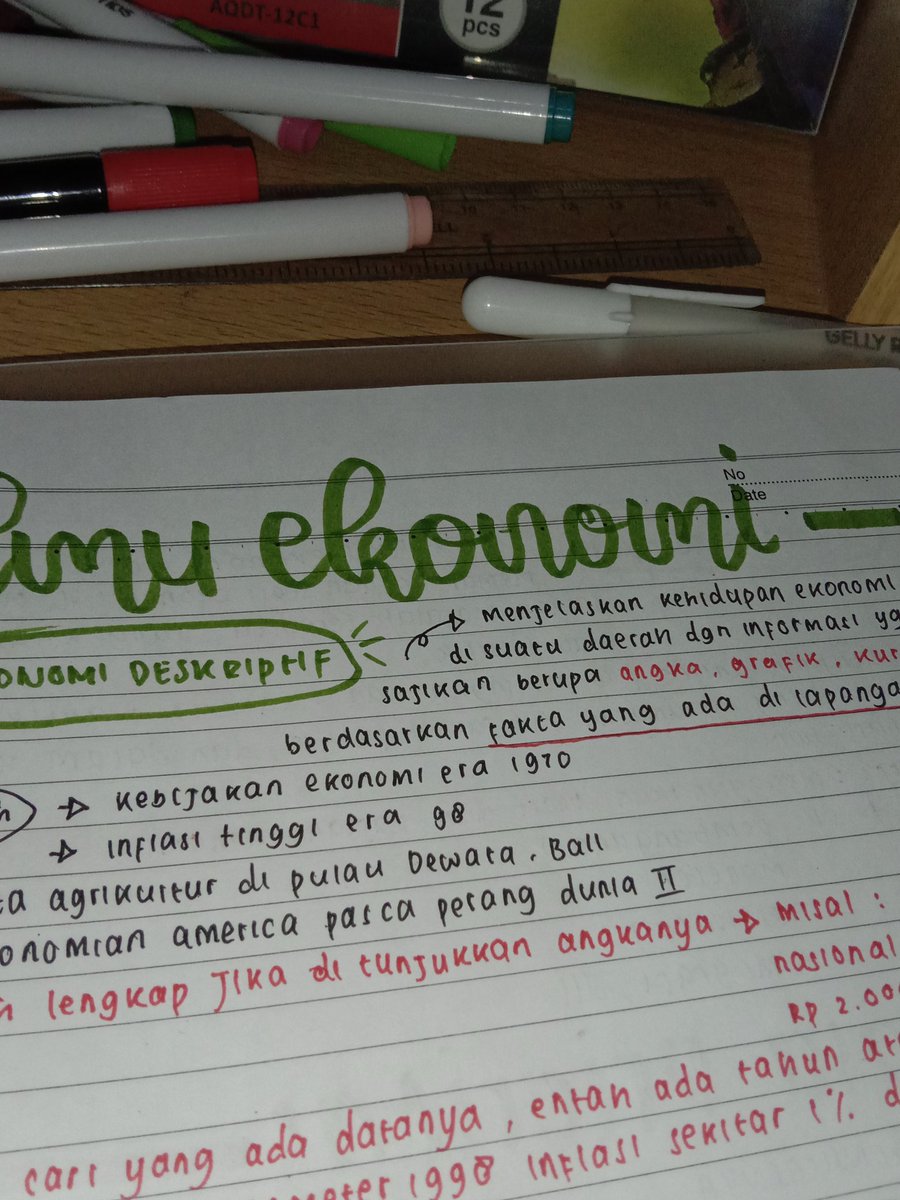 AODT-12C1
12
pcs
GELLY R
No
Date
ekonomi —
menjelaskan kehidupan ekonomi
EKONOMI DESKRIPTIF
di suatu daerah dgn informasi
sajikan berupa angka, grafik,
berdasarkan fakta yang ada di
→ kebijakan ekonomi era 1970
→ inflasi tinggi era 98
agrikultur di pulau Dewata, Bali
america pasca perang dunia II
lengkap Jika di tunjukkan angkanya → misal :
nasional
Rp 2.00
cari yang ada datanya, entah ada tahun
1998 inflasi sekitar 1%